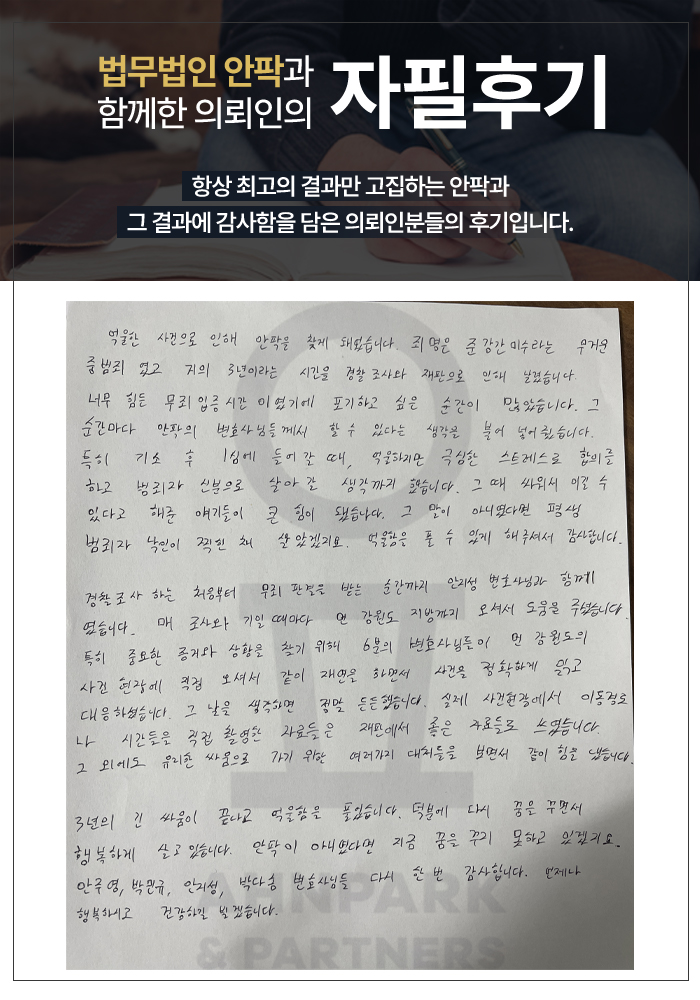 법무법인 안팍과
함께한 의뢰인의
자필후기
항상 최고의 결과만 고집하는 안팍과
그 결과에 감사함을 담은 의뢰인분들의 후기입니다.
억울한 사건으로 인해 안팍을 찾게 돼었습니다. 죄명은 준강간미수라는 무거운
중범죄 였고 거의 3년이라는 시간을 경찰조사와 재판으로 인해 날렸습니다.
너무 힘든 무죄 입증 시간 이였기에 포기하고 싶은 순간이 많았습니다. 그
순간마다 안팍의 변호사님들께서 할 수 있다는 생각을 불어 넣어줬습니다.
특히 기소 후 1심에 들어갈 때, 억울하지만 극심한 스트레스로 합의를
하고 범죄자 신분으로 살아갈 생각까지 했습니다. 그 때 싸워서 이길 수
있다고 해준 얘기들이 큰 힘이 됐습니다. 그 말이 아니였다면 평생
범죄자 낙인이 찍힌 채 살았겠지요. 억울함을 풀 수 있게 해주셔서 감사합니다.
경찰조사 하는 처음부터 무죄 판결을 받는 순간까지 안지성 변호사님과 함께
였습니다. 매 조사와 기일 때마다 먼 강원도 지방까지 오셔서 도움을 주셨습니다.
특히 중요한 증거와 상황을 찾기 위해 6분의 변호사님들이 먼 강원도의
사건 현장에 직접 오셔서 같이 재연을 하면서 사건을 정확하게 읽고
대응하셨습니다. 그 날을 생각하면 정말 든든했습니다. 실제 사건현장에서 이동경로
나 시간들을 직접 촬영한 자료들은 재판에서 좋은 자료들로 쓰였습니다.
그 외에도 유리한 싸움으로 가기 위한 여러가지 대처들을 보면서 같이 힘을 냈습니다.
3년의 긴 싸움이 끝나고 억울함을 풀었습니다. 덕분에 다시 꿈을 꾸면서
행복하게 살고 있습니다. 안팍이 아니였다면 지금 꿈을 꾸지 못하고 있겠지요.
안주영, 박민규, 안지성, 박다솜 변호사님들 다시 한번 감사합니다. 언제나
행복하시고 건강하길 빌겠습니다.
ANPARK
& PARTNERS